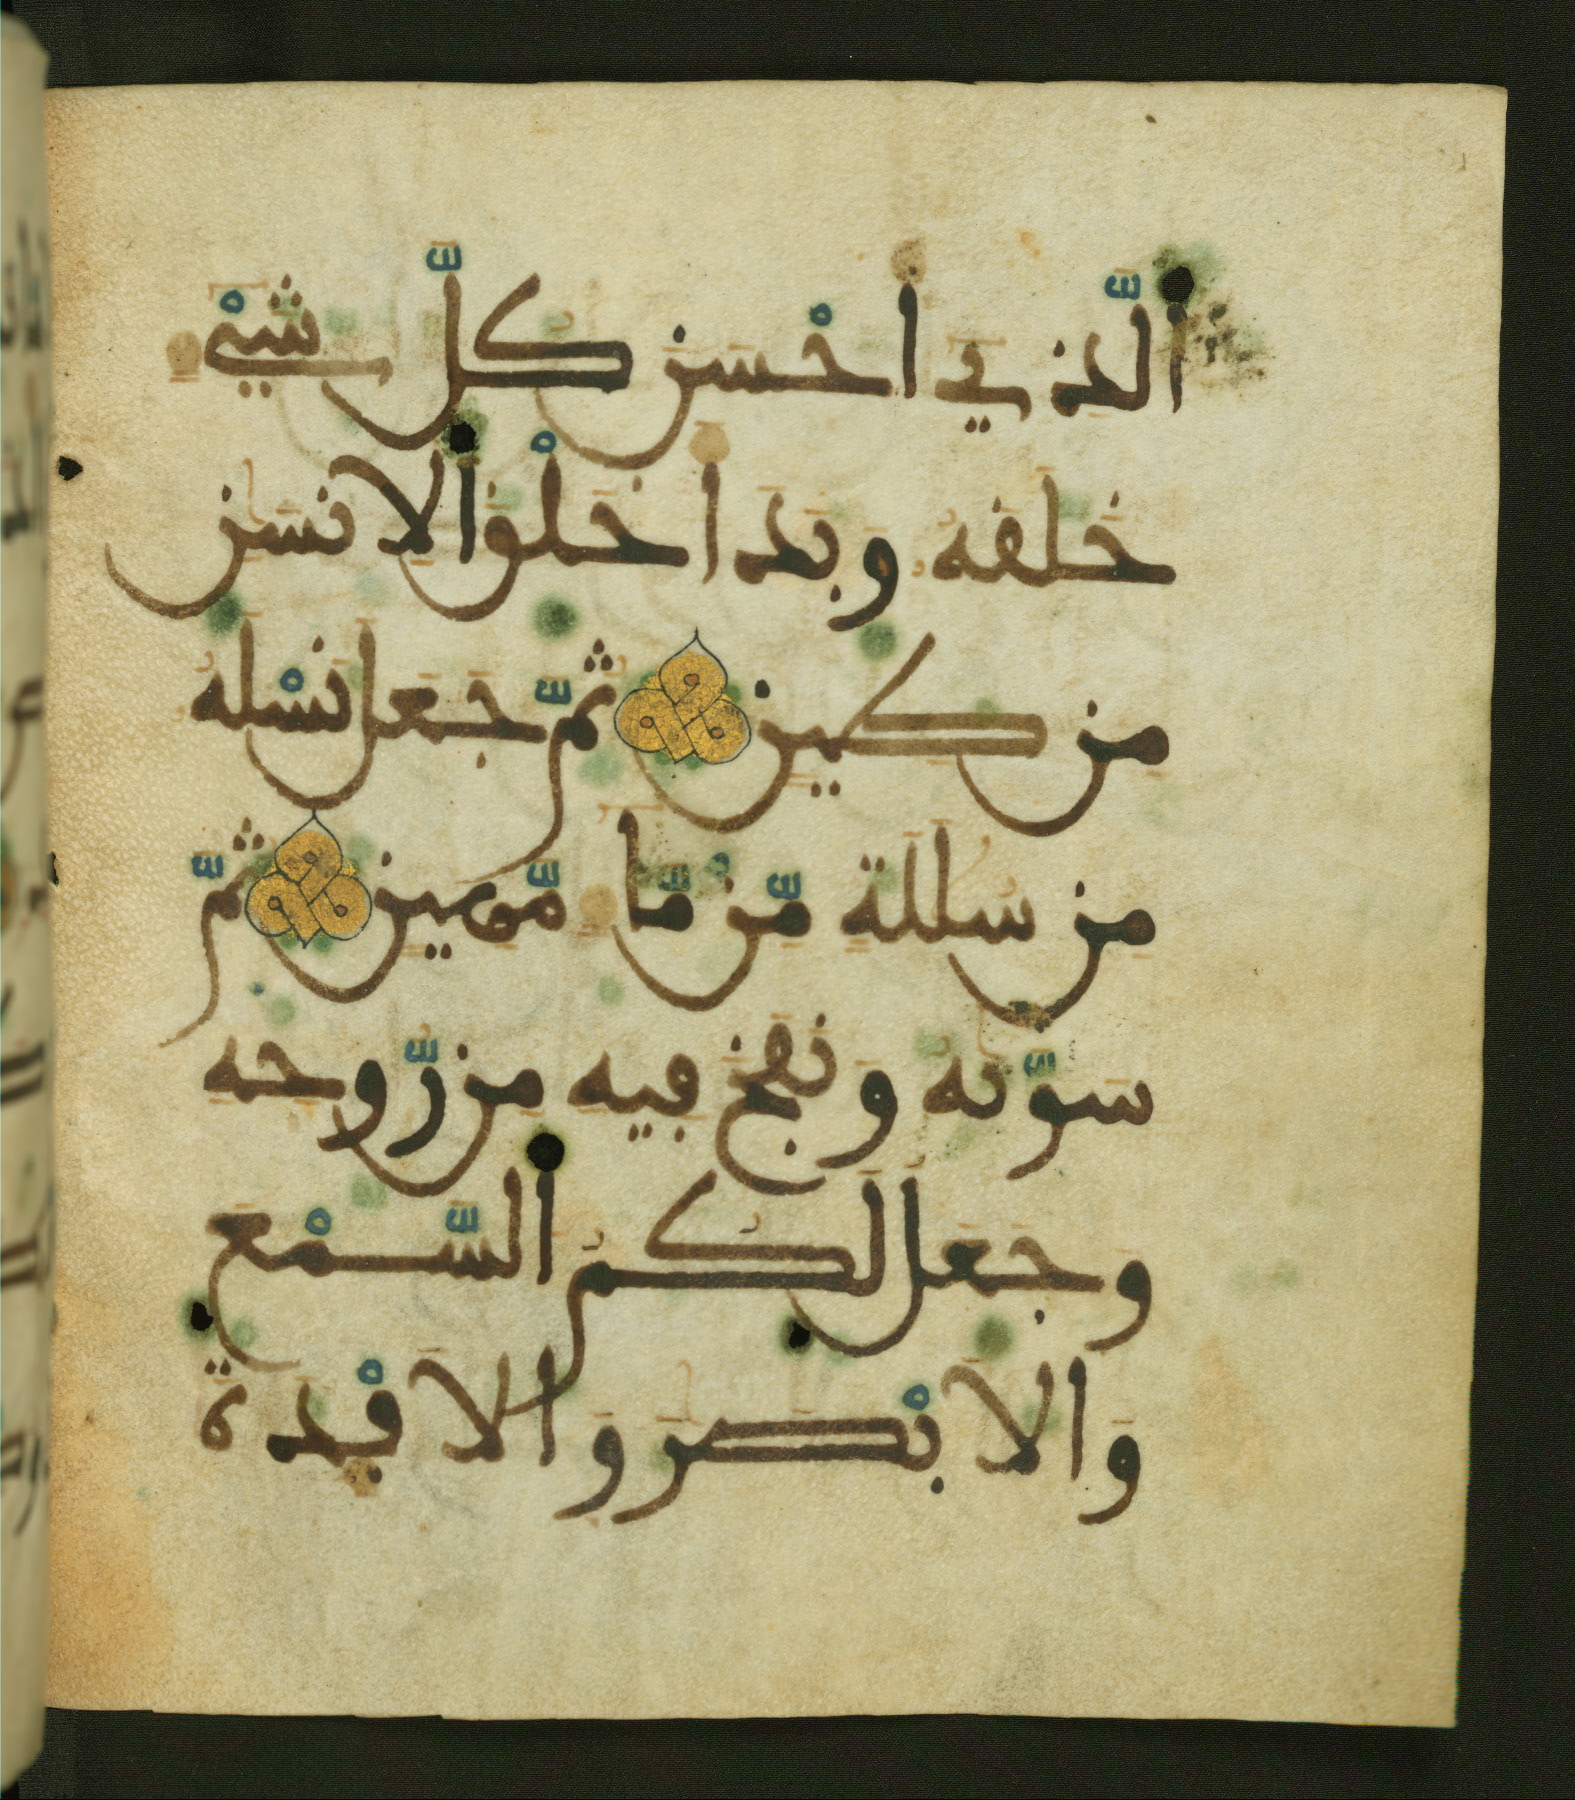 الَّذِي أَحْسَنَ كُلَّ شَيْءٍ
خَلَقَهُ وَبَدَأَ خَلْقَ الْإِنسَٰنِ
مِن طِينٍ ثُمَّ جَعَلَ نَسْلَهُ
مِن سُلَٰلَةٍ مِّن مَّاءٍ مَّهِينٍ ثُمَّ
سَوَّىٰهُ وَنَفَخَ فِيهِ مِن رُّوحِهِ
وَجَعَلَ لَكُمُ السَّمْعَ
وَالْأَبْصَٰرَ وَالْأَفْـِٔدَةَ